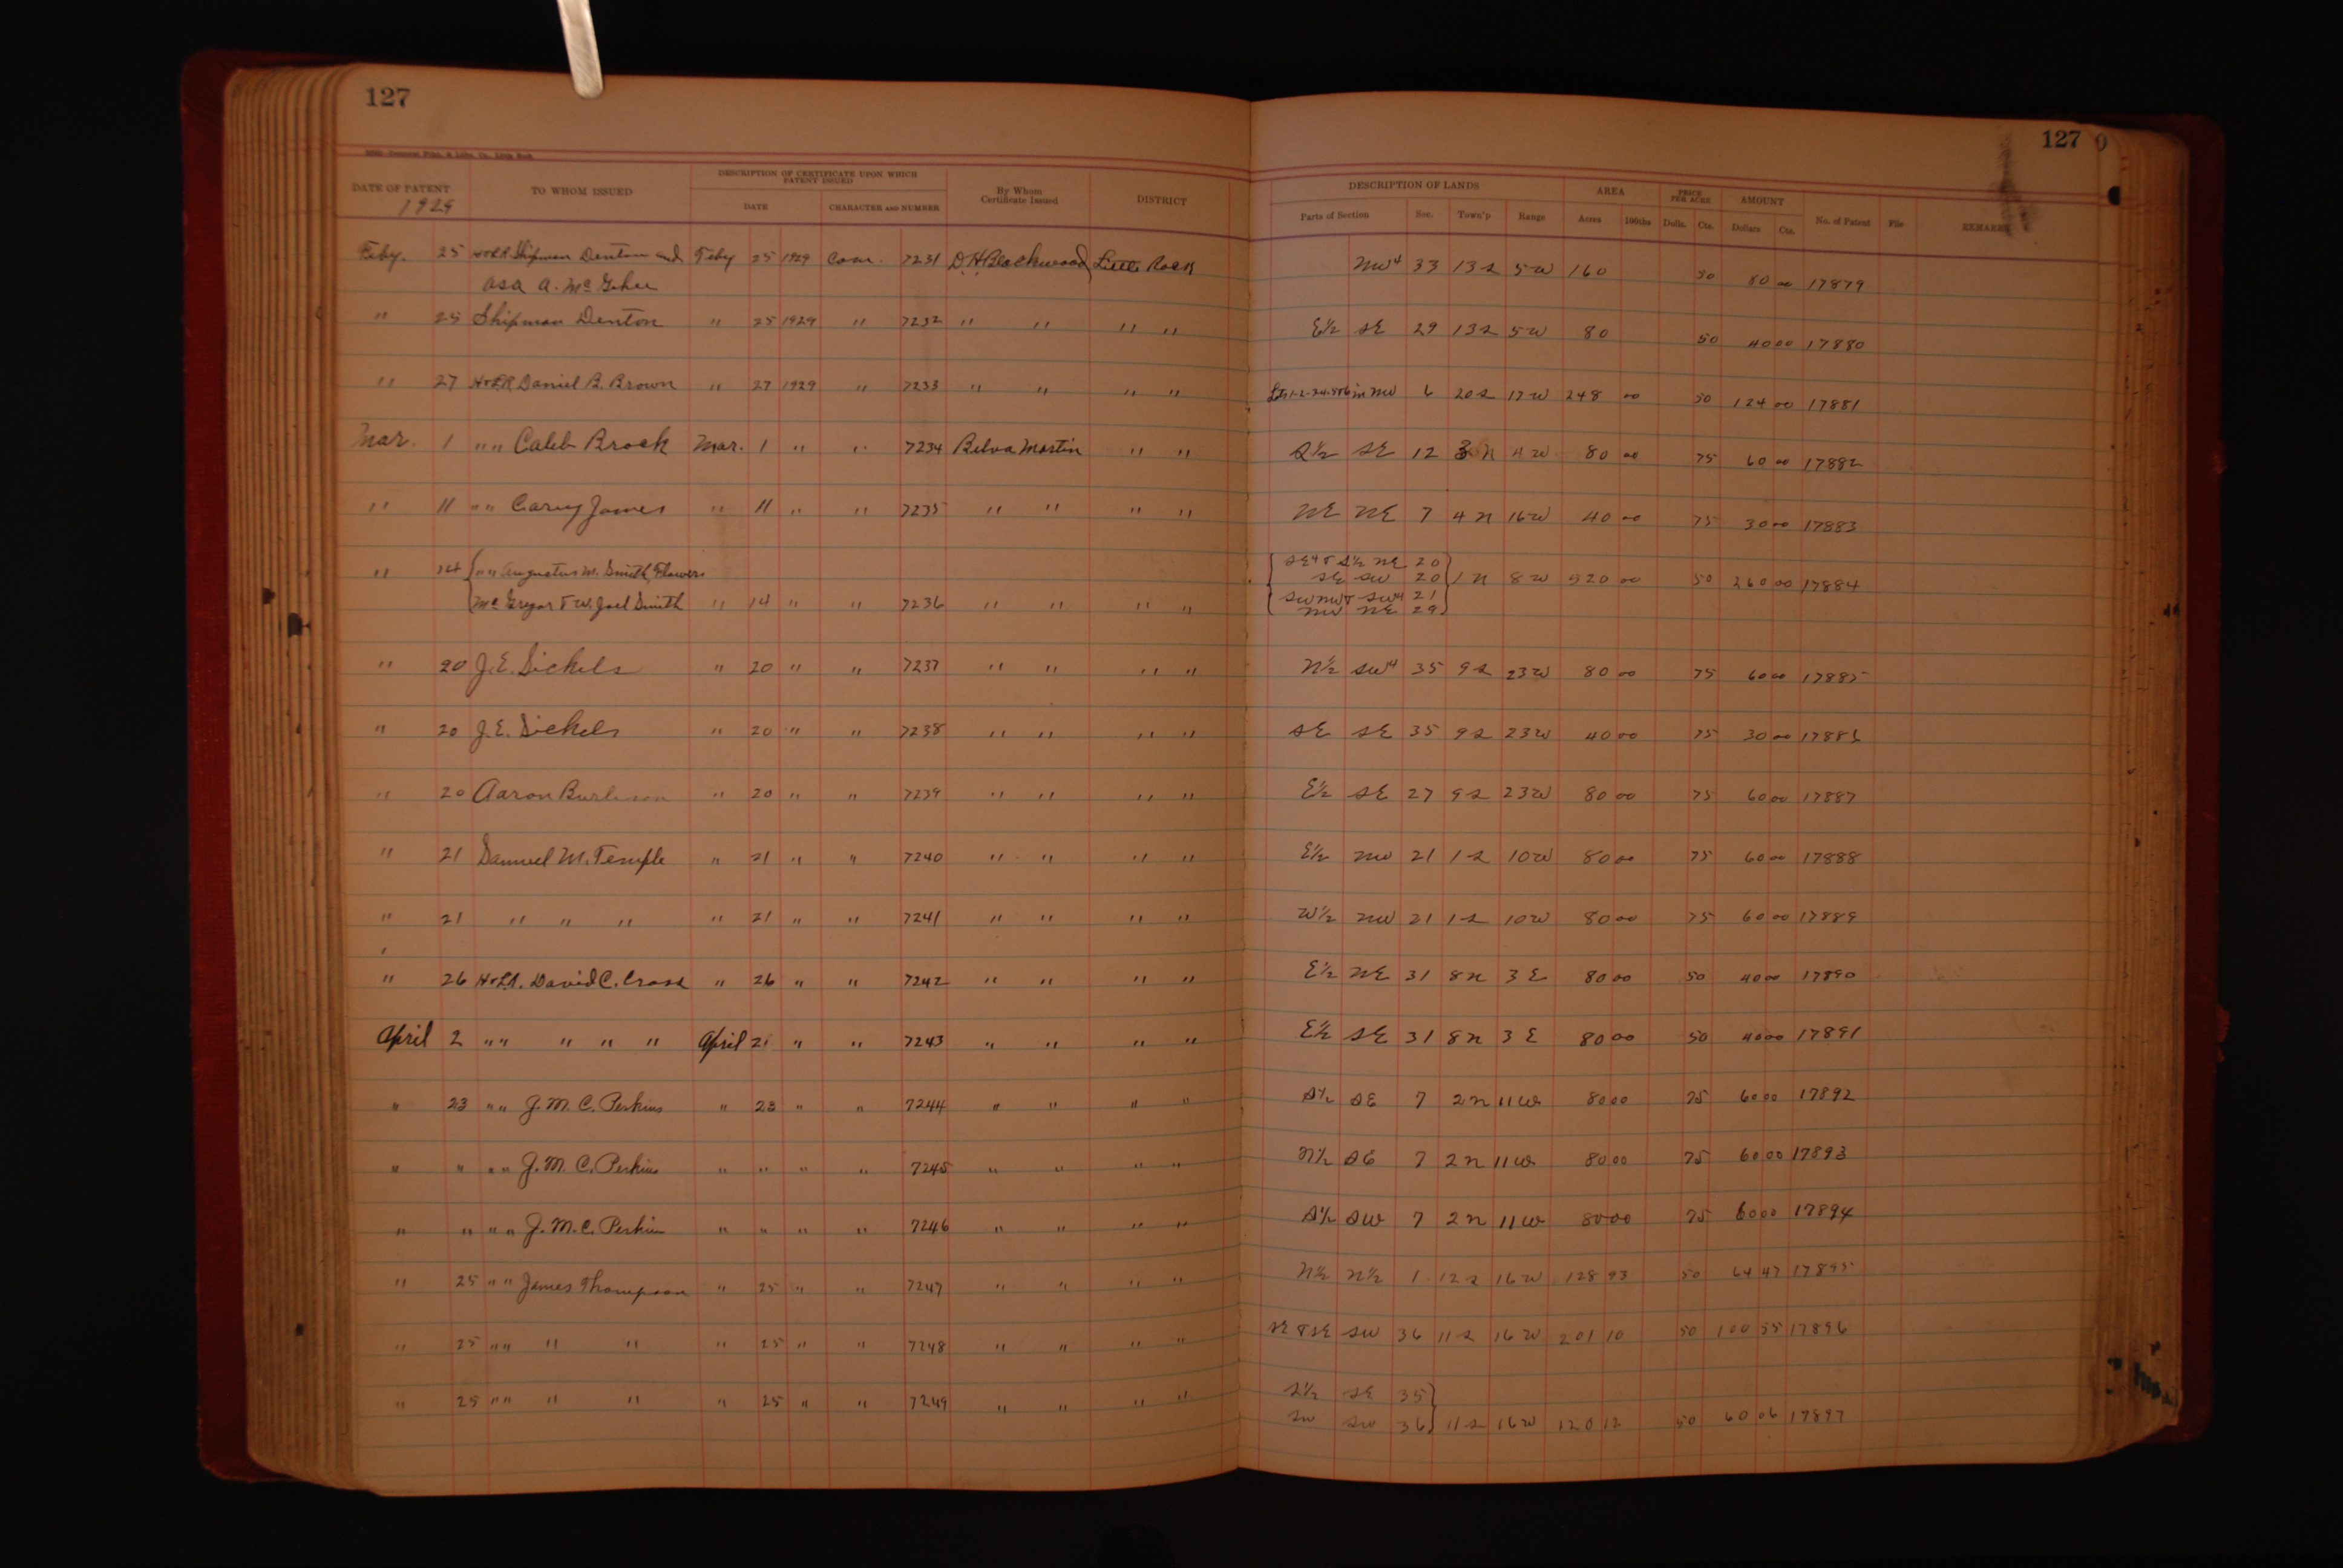 127
127
DATE OF PATENT TO WHOM ISSUED DESCRIPTION OF CERTIFICATE UPON WHICH PATENT ISSUED By Whom Certificate Issued DISTRICT DESCRIPTION OF LANDS AREA PRICE PER ACRE AMOUNT No. of Patent File REMARKS
1929 DATE CHARACTER AND NUMBER Parts of Section Sec. Town'p Range Acres 100ths Dolls. Cts. Dollars Cts.
Feby. 25 H&LR Shipman Denton and Feby 25 1929 Com. 7231 D.H. Blackwood Little Rock NW4 33 13S 5W 160 50 80 00 17879
Asa A. McGehee
" 25 Shipman Denton " 25 1929 " 7232 " " " " E½ SE 29 13S 5W 80 50 40 00 17880
" 27 H&LR Daniel B. Brown " 27 1929 " 7233 " " " " Lts 1-2-3-4-5&6 in NW 6 20S 17W 248 00 50 124 00 17881
Mar. 1 " " Caleb Brock Mar. 1 " " 7234 Belva Martin " " S½ SE 12 3N 4W 80 00 75 60 00 17882
" 11 " " Carey James " 11 " " 7235 " " " " NE NE 7 4N 16W 40 00 75 30 00 17883
" 14 " " Augustus M. Smith, Flowers SE4 & S½ NE 20
SE SW 20 1N 8W 520 00 50 260 00 17884
McGregor & W. Joel Smith " 14 " " 7236 " " " " SW NW & SW4 21
NW NE 29
" 20 J.E. Sickels " 20 " " 7237 " " " " N½ SW4 35 9S 23W 80 00 75 60 00 17885
" 20 J.E. Sickels " 20 " " 7238 " " " " SE SE 35 9S 23W 40 00 75 30 00 17886
" 20 Aaron Burleson " 20 " " 7239 " " " " E½ SE 27 9S 23W 80 00 75 60 00 17887
" 21 Samuel M. Temple " 21 " " 7240 " " " " E½ NW 21 1S 10W 80 00 75 60 00 17888
" 21 " " " " 21 " " 7241 " " " " W½ NW 21 1S 10W 80 00 75 60 00 17889
" 26 H&LR. David C. Cross " 26 " " 7242 " " " " E½ NE 31 8N 3E 80 00 50 40 00 17890
April 2 " " " " " April 2 " " 7243 " " " " E½ SE 31 8N 3E 80 00 50 40 00 17891
" 23 " " J.M.C. Perkins " 23 " " 7244 " " " " S½ SE 7 2N 11W 80 00 75 60 00 17892
" " " " J.M.C. Perkins " " " " 7245 " " " " N½ SE 7 2N 11W 80 00 75 60 00 17893
" " " " J.M.C. Perkins " " " " 7246 " " " " S½ SW 7 2N 11W 80 00 75 60 00 17894
" 25 " " James Thompson " 25 " " 7247 " " " " N½ N½ 1 12S 16W 128 93 50 64 47 17895
" 25 " " " " " 25 " " 7248 " " " " SE & SE SW 36 11S 16W 201 10 50 100 55 17896
" 25 " " " " " 25 " " 7249 " " " " S½ SE 35
SW SW 36 11S 16W 120 12 50 60 06 17897